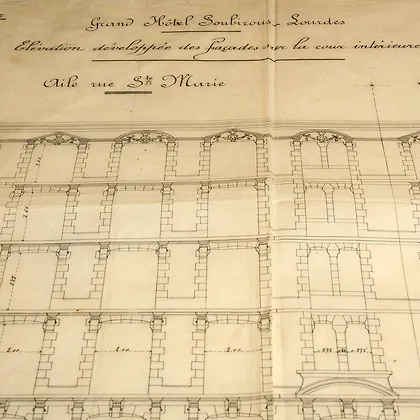 Grand Hôtel Soubirous - Lourdes
Elévation développée des façades sur la cour intérieure
Aile rue Ste Marie
2.00 2.00 2.00